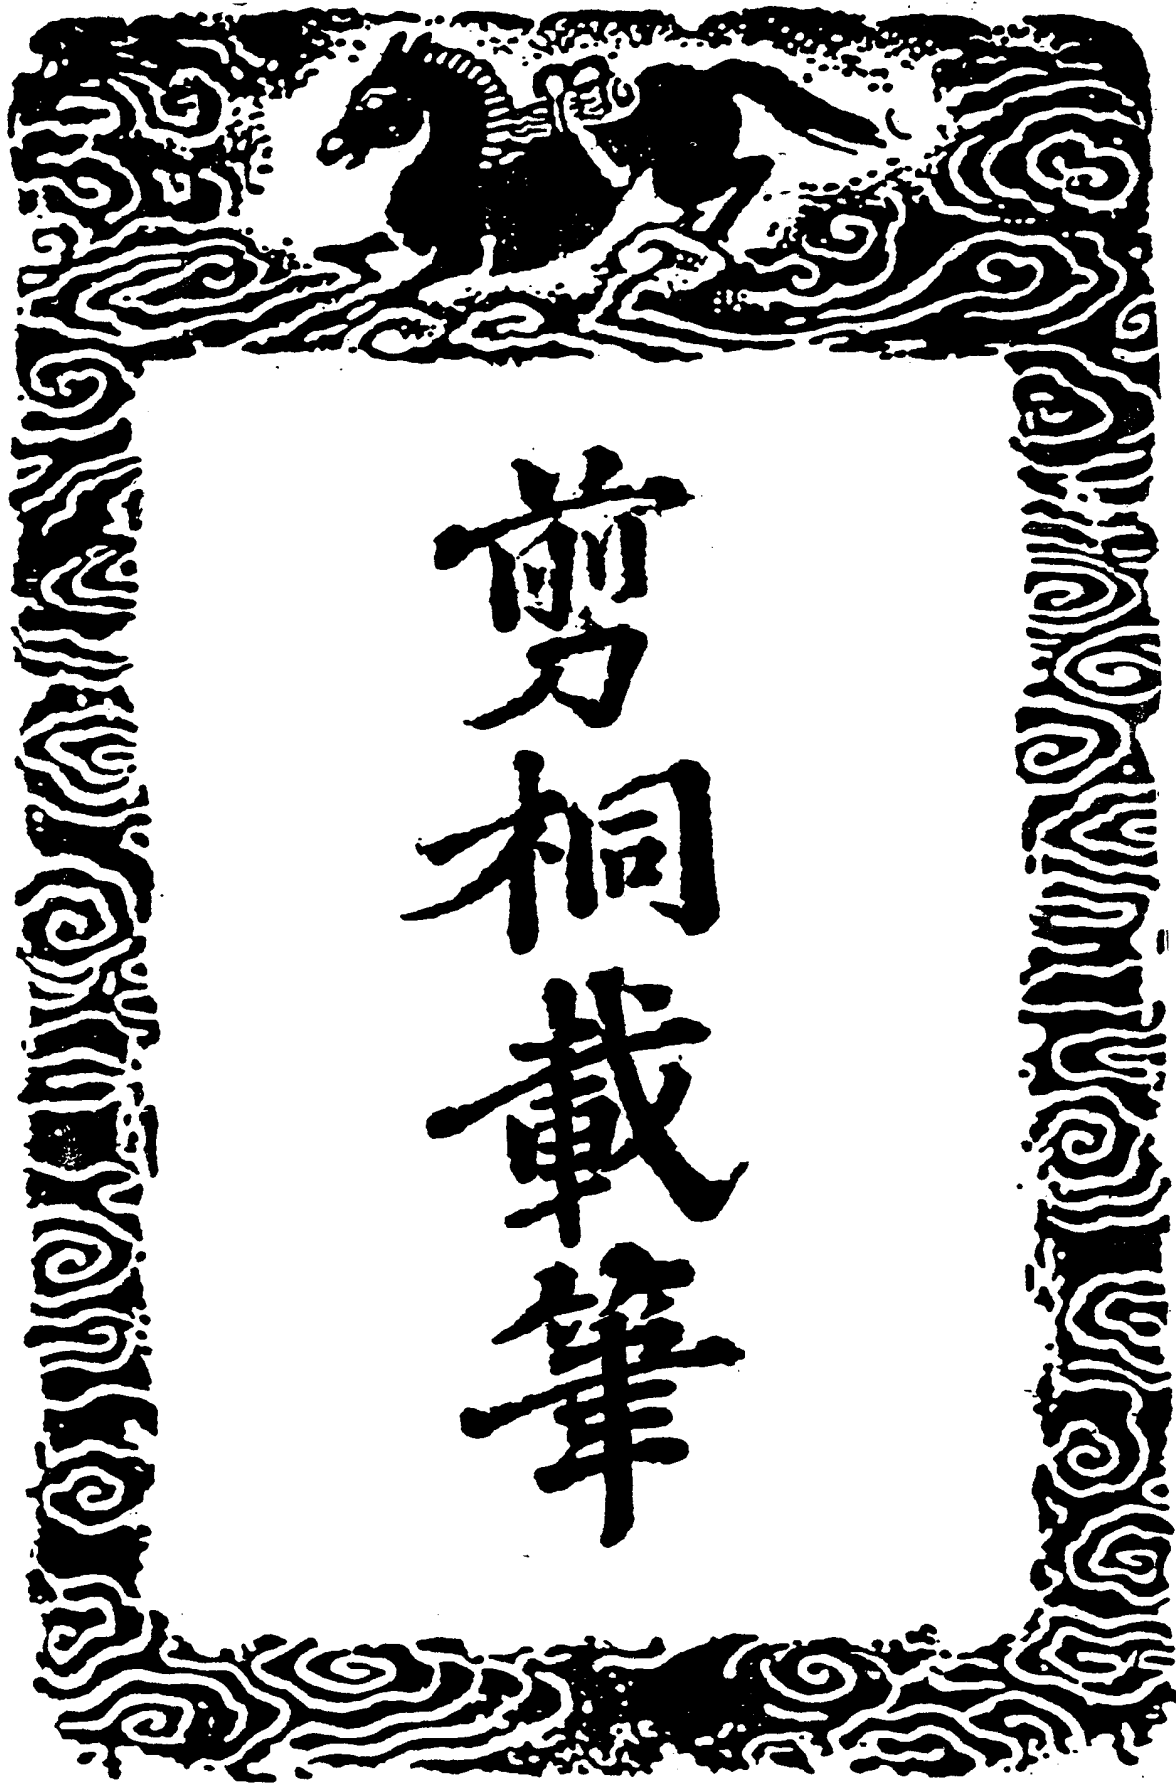 剪桐載筆